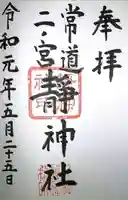 奉拝
常道
二ノ宮靜神社
令和元年五月二十五日